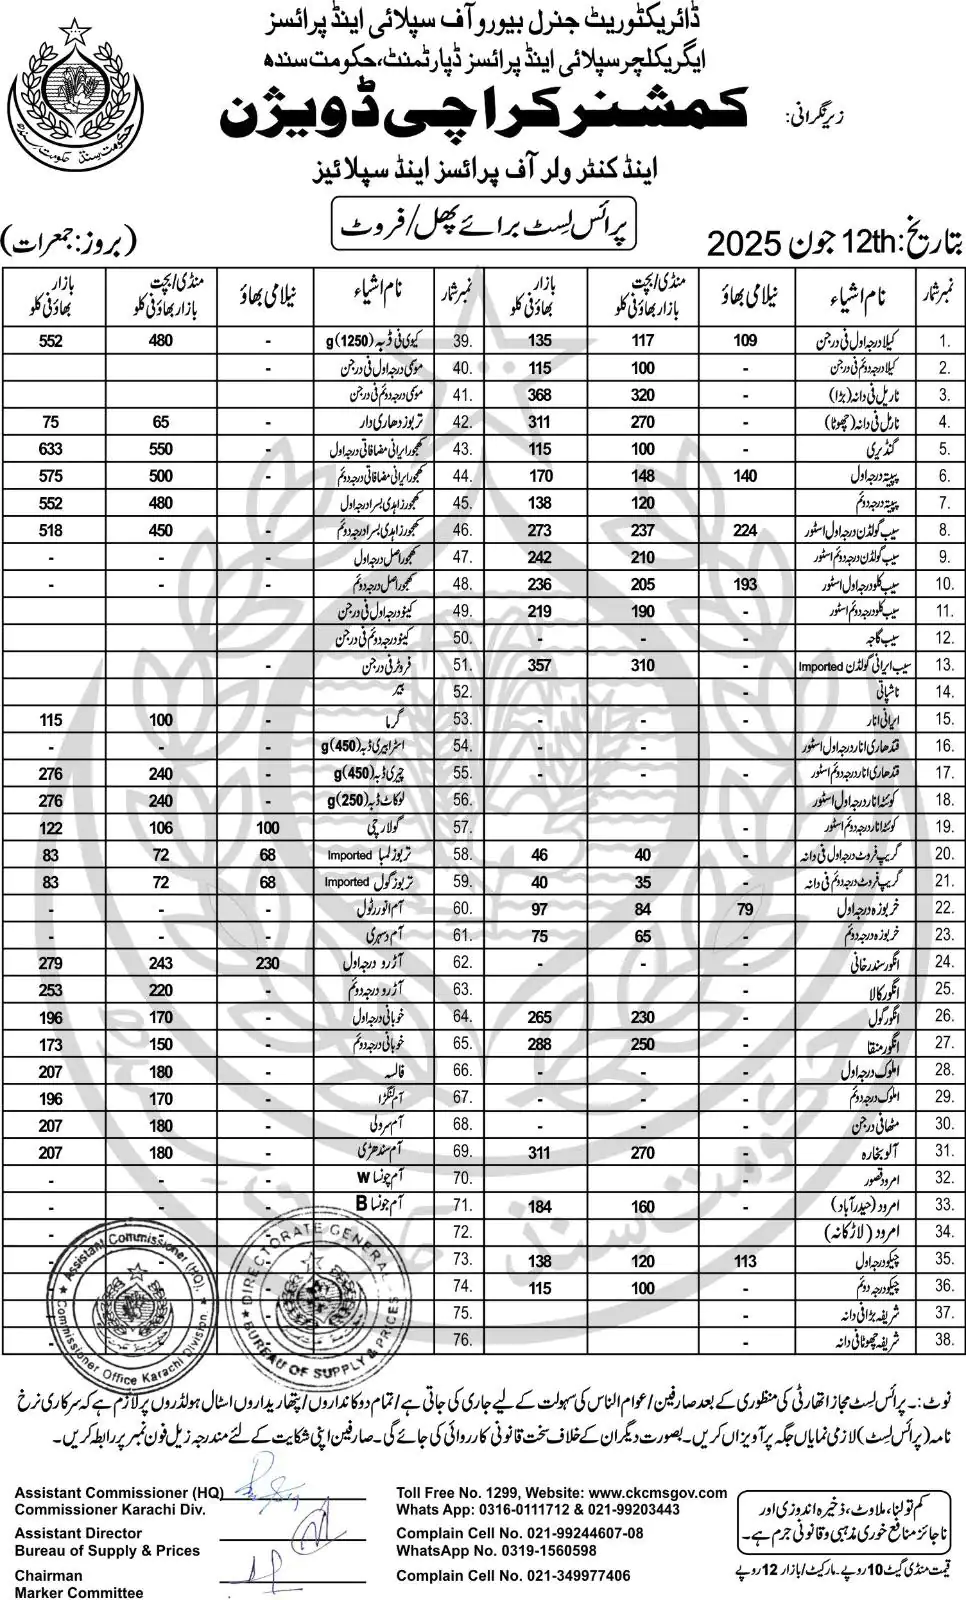 ڈائریکٹوریٹ جنرل بیورو آف سپلائی اینڈ پرائسز
ایگریکلچر سپلائی اینڈ پرائسز ڈپارٹمنٹ، حکومت سندھ
زیرنگرانی: کمشنر کراچی ڈویژن
اینڈ کنٹرولر آف پرائسز اینڈ سپلائیز
پرائس لسٹ برائے پھل/فروٹ
بتاریخ: 12th جون 2025 (بروز: جمعرات)
نمبر شمار نام اشیاء نیلامی بھاؤ منڈی/بچت بازار بھاؤ فی کلو بازار بھاؤ فی کلو
1. کیلا درجہ اول فی درجن 109 117 135
2. کیلا درجہ دوئم فی درجن - 100 115
3. ناریل فی دانہ (بڑا) - 320 368
4. ناریل فی دانہ (چھوٹا) - 270 311
5. گنڈیری - 100 115
6. پپیتہ درجہ اول 140 148 170
7. پپیتہ درجہ دوئم - 120 138
8. سیب گولڈن درجہ اول اسٹور 224 237 273
9. سیب گولڈن درجہ دوئم اسٹور - 210 242
10. سیب کلو درجہ اول اسٹور 193 205 236
11. سیب کلو درجہ دوئم اسٹور - 190 219
12. سیب گاجہ - - -
13. سیب ایرانی گولڈن Imported - 310 357
14. ناشپاتی -
15. ایرانی انار - - -
16. قندھاری انار درجہ اول اسٹور - - -
17. قندھاری انار درجہ دوئم اسٹور - - -
18. کوئٹہ انار درجہ اول اسٹور
19. کوئٹہ انار درجہ دوئم اسٹور -
20. گریپ فروٹ درجہ اول فی دانہ - 40 46
21. گریپ فروٹ درجہ دوئم فی دانہ - 35 40
22. خربوزہ درجہ اول 79 84 97
23. خربوزہ درجہ دوئم - 65 75
24. انگور سندرخانی - - -
25. انگور کالا
26. انگور گول - 230 265
27. انگور منقا - 250 288
28. املوک درجہ اول - - -
29. املوک درجہ دوئم - - -
30. مٹھا فی درجن - - -
31. آلو بخارہ - 270 311
32. امرود قصور -
33. امرود (حیدرآباد) - 160 184
34. امرود (لاڑکانہ) -
35. چیکو درجہ اول 113 120 138
36. چیکو درجہ دوئم - 100 115
37. شریفہ بڑا فی دانہ -
38. شریفہ چھوٹا فی دانہ -
نمبر شمار نام اشیاء نیلامی بھاؤ منڈی/بچت بازار بھاؤ فی کلو بازار بھاؤ فی کلو
39. کیوی فی ڈبہ (1250)g - 480 552
40. موسمی درجہ اول فی درجن -
41. موسمی درجہ دوئم فی درجن
42. تربوز دھاری دار - 65 75
43. کھجور ایرانی مضافاتی درجہ اول - 550 633
44. کھجور ایرانی مضافاتی درجہ دوئم - 500 575
45. کھجور زاہدی بسرا درجہ اول - 480 552
46. کھجور زاہدی بسرا درجہ دوئم - 450 518
47. کھجور اصل درجہ اول - - -
48. کھجور اصل درجہ دوئم - - -
49. کینو درجہ اول فی درجن -
50. کینو درجہ دوئم فی درجن
51. فروٹر فی درجن -
52. بیر
53. گرما - 100 115
54. اسٹرابیری ڈبہ (450)g - - -
55. چیری ڈبہ (450)g - 240 276
56. لوکاٹ ڈبہ (250)g - 240 276
57. گولارچی 100 106 122
58. تربوز لمبا Imported 68 72 83
59. تربوز گول Imported 68 72 83
60. آم انور رٹول - - -
61. آم دسہری - - -
62. آڑو درجہ اول 230 243 279
63. آڑو درجہ دوئم - 220 253
64. خوبانی درجہ اول - 170 196
65. خوبانی درجہ دوئم - 150 173
66. فالسہ - 180 207
67. آم لنگڑا - 170 196
68. آم سرولی - 180 207
69. آم سندھڑی - 180 207
70. آم چونسا W - - -
71. آم چونسا B - - -
72.
73.
74.
75.
76.
Assistant Commissioner (HQ)
Commissioner Office Karachi Division.
DIRECTORATE GENERAL
BUREAU OF SUPPLY & PRICES
نوٹ:۔ پرائس لسٹ مجاز اتھارٹی کی منظوری کے بعد صارفین/عوام الناس کی سہولت کے لیے جاری کی جاتی ہے/تمام دوکانداروں/پتھاریداروں اسٹال ہولڈروں پر لازم ہے کہ سرکاری نرخ
نامہ (پرائس لسٹ) لازمی نمایاں جگہ پر آویزاں کریں۔ بصورت دیگر ان کے خلاف سخت قانونی کارروائی کی جائے گی۔ صارفین اپنی شکایت کے لئے مندرجہ زیل فون نمبر پر رابطہ کریں۔
Assistant Commissioner (HQ)
Commissioner Karachi Div.
Assistant Director
Bureau of Supply & Prices
Chairman
Marker Committee
Toll Free No. 1299, Website: www.ckcmsgov.com
Whats App: 0316-0111712 & 021-99203443
Complain Cell No. 021-99244607-08
WhatsApp No. 0319-1560598
Complain Cell No. 021-349977406
کم تولنا، ملاوٹ، ذخیرہ اندوزی اور
ناجائز منافع خوری مذہبی و قانونی جرم ہے۔
قیمت منڈی گیٹ 10 روپے۔ مارکیٹ/بازار 12 روپے